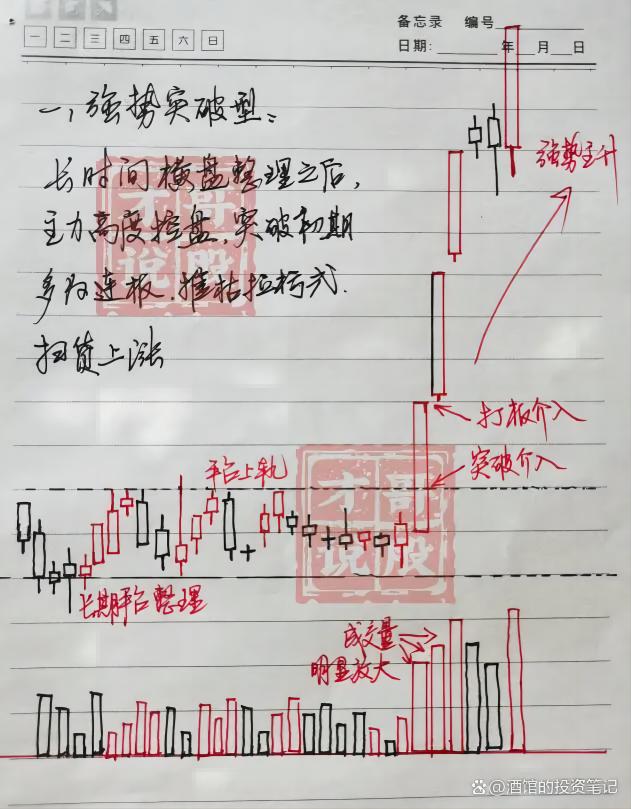 备忘录 编号
一 二 三 四 五 六 日
日期: 年 月 日
一，强势突破型：
长时间横盘整理之后，
主力高度控盘，突破初期
多为连板，摧枯拉朽式
扫货上涨
强势主升
打板介入
突破介入
平台上轨
长期平台整理
成交量
明显放大
才哥
说股
才哥
说股
@酒馆的投资笔记